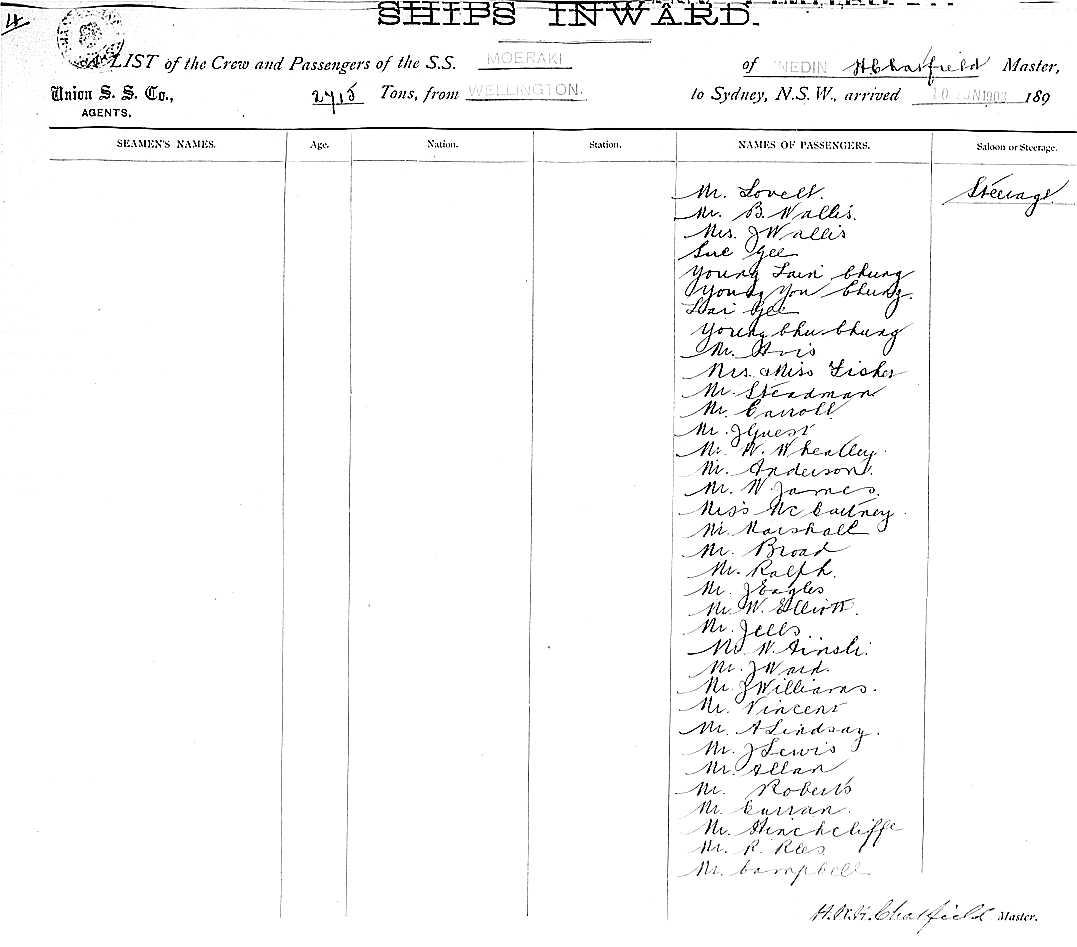 4
SHIPS INWARD.
A LIST of the Crew and Passengers of the S.S. MOERAKI of DUNEDIN H Chatfield Master,
Union S. S. Co., 2715 Tons, from WELLINGTON. to Sydney, N.S.W., arrived 10 JUN 1903 189
AGENTS,
SEAMEN'S NAMES. Age. Nation. Station. NAMES OF PASSENGERS. Saloon or Steerage.
Mr. Lovell. Steerage
Mr. B. Wallis.
Mrs. J Wallis
Sue Gee
Young Lain Chung
Young You Chung.
Lai Gee
Young Chu Chung
Mr. Avis
Mrs. & Miss Fisher
Mr. Steadman
Mr. Carroll
Mr. J Guest
Mr. W. Wheatley.
Mr. Anderson.
Mr. W. James.
Miss McCartney.
Mr. Marshall
Mr. Broad
Mr. Ralph.
Mr. J Eagles
Mr. W. Elliott.
Mr. Jells
Mr. W. Ainsli.
Mr. J Ward.
Mr. J Williams.
Mr. Vincent
Mr. A Lindsay.
Mr. J Lewis
Mr. Allan
Mr. Roberts
Mr. Curran.
Mr. Hinchcliffe
Mr. R. Rees
Mr. Campbell
Chatfield Master.